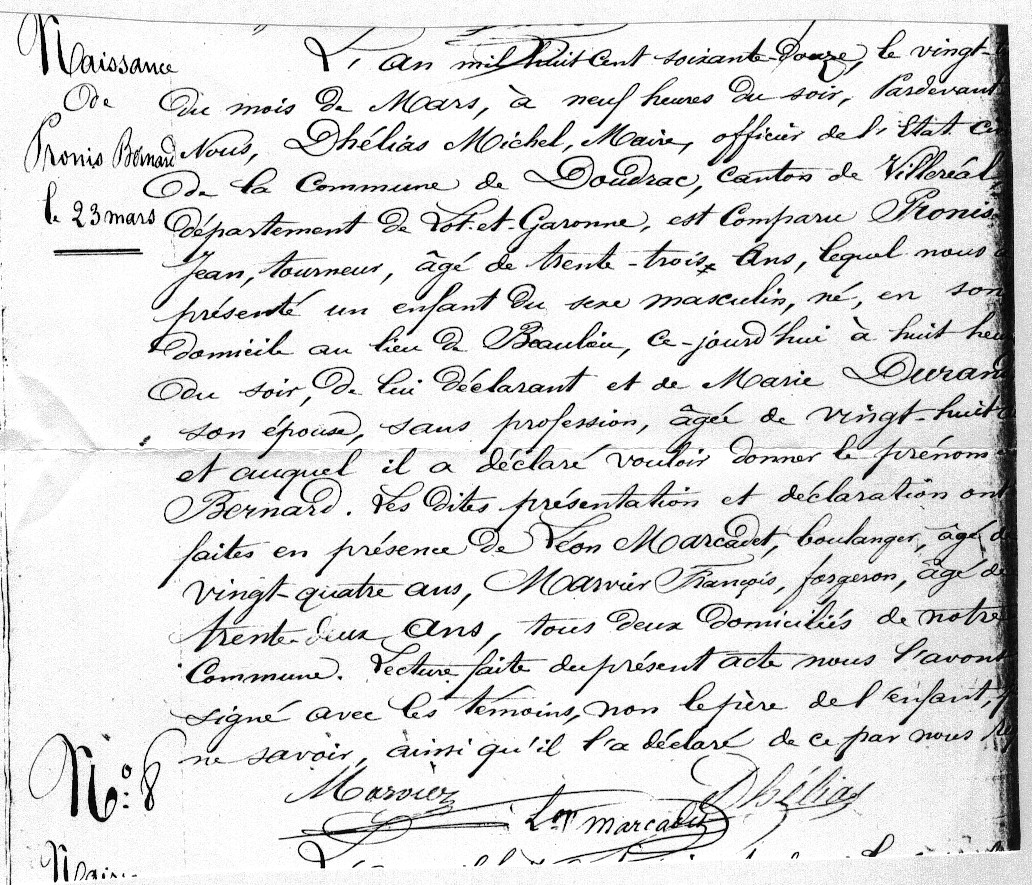 Naissance
de
Pronis Bernard
le 23 mars
L'an mil huit cent soixante-douze, le vingt-
du mois de Mars, à neuf heures du soir, Pardevant
Nous, Dhélias Michel, Maire, officier de l'Etat Ci
de la Commune de Doudrac, canton de Villeréal,
département de Lot-et-Garonne, est Comparu Pronis
Jean, tourneur, âgé de trente-trois ans, lequel nous a
présenté un enfant du sexe masculin, né, en son
domicile au lieu de Beaulieu, ce-jourd'hui à huit heu
du soir, de lui déclarant et de Marie Durand
son épouse, sans profession, âgée de vingt-huit a
et auquel il a déclaré vouloir donner le prénom
Bernard. Les dites présentation et déclaration ont
faites en présence de Léon Marcadet, boulanger, âgé de
vingt-quatre ans, Marvier François, forgeron, âgé de
trente-deux ans, tous deux domiciliés de notre
Commune. Lecture faite du présent acte nous l'avons
signé avec les témoins, non le père de l'enfant, p
ne savoir, ainsi qu'il l'a déclaré de ce par nous
N° 8
Marvier
Dhélias
Léon Marcadet